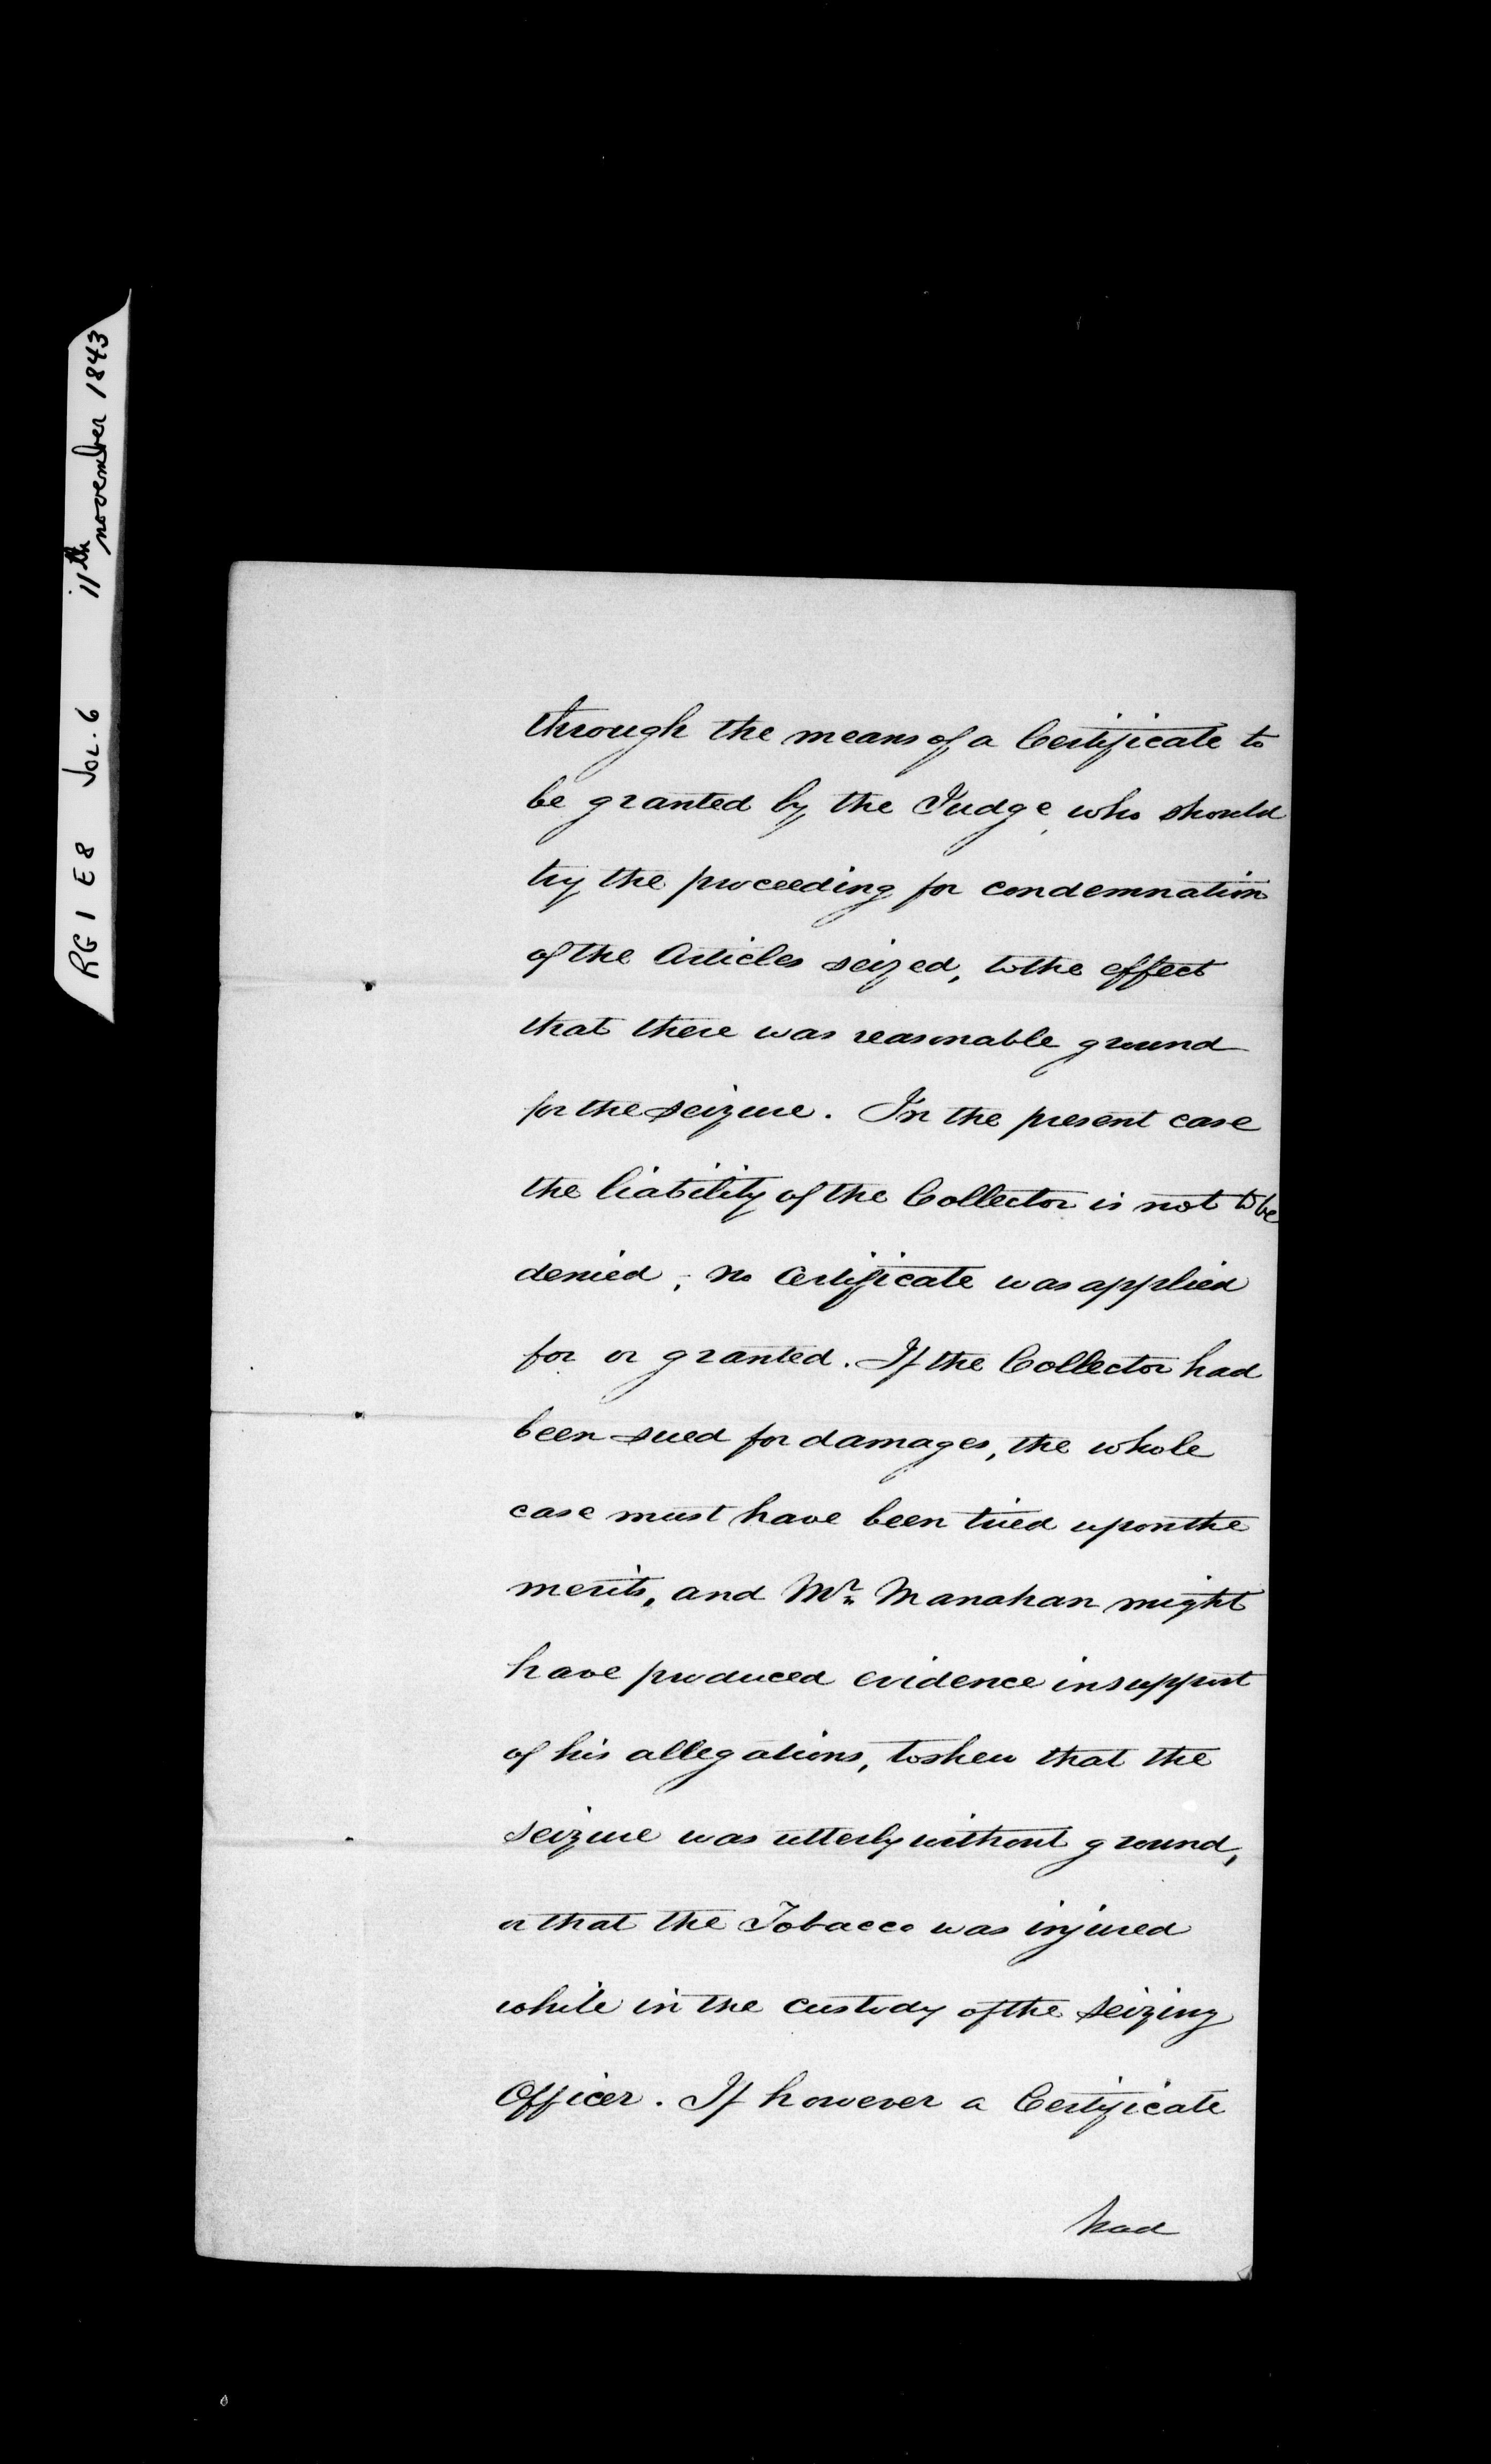 RG 1 E 8 Vol. 6 11th november 1843
through the means of a Certificate to
be granted by the Judge who should
try the proceeding for condemnation
of the Articles seized, to the effect
that there was reasonable ground
for the seizure. In the present case
the liability of the Collector is not to be
denied; no Certificate was applied
for or granted. If the Collector had
been sued for damages, the whole
case must have been tried upon the
merits, and Mr. Manahan might
have produced evidence in support
of his allegations, to shew that the
seizure was utterly without ground,
or that the Tobacco was injured
while in the custody of the Seizing
Officer. If however a Certificate
had